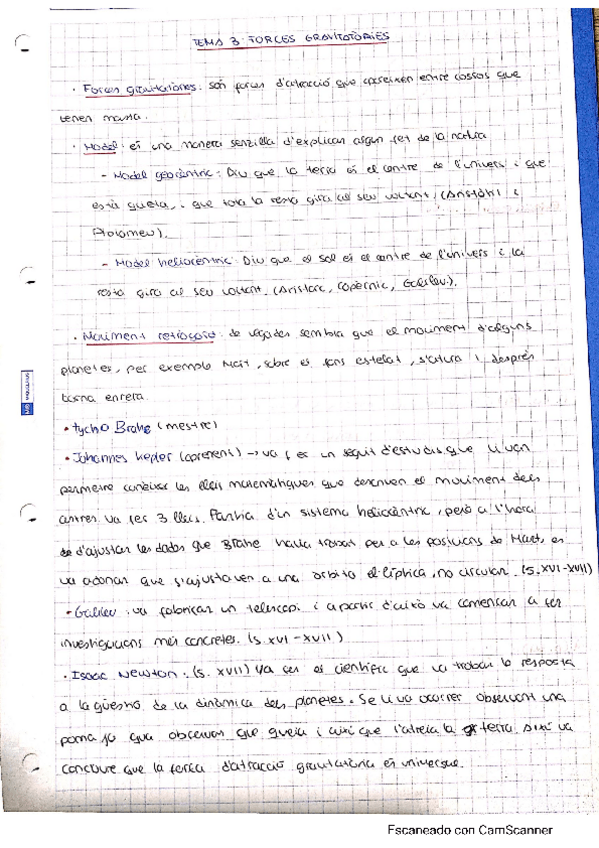 TEMA 3: FORCES GRAVITATÒRIES
· Forces gravitatòries: són forces d'atracció que apareixen entre cossos que
tenen massa.
· Model: és una manera senzilla d'explicar algun fet de la natura
- Model geocèntric: Diu que la terra és el centre de l'univers i que
està quieta, i que tota la resta gira al seu voltant. (Aristòtil i
Ptolomeu).
- Model heliocèntric: Diu que el sol és el centre de l'univers i la
resta gira al seu voltant. (Aristarc, Copèrnic, Galileu).
· Moviment retrògrad: de vegades sembla que el moviment d'alguns
planetes, per exemple Mart, sobre el fons estelat, s'atura i després
torna enrera.
• Tycho Brahe (mestre)
• Johannes Kepler (aprenent) → va fer un seguit d'estudis que li van
permetre conèixer les lleis matemàtiques que descriuen el moviment dels
astres va fer 3 lleis. Partia d'un sistema heliocèntric, però a l'hora
d'ajustar les dades que Brahe havia trobat per a les posicions de Mart, es
va adonar que s'ajustaven a una orbita el·líptica, no circular. (s. XVI-XVII)
• Galileu: va fabricar un telescopi i a partir d'això va començar a fer
investigacions més concretes. (s. XVI - XVII)
· Isaac Newton. (s. XVII) Va ser el científic que va trobar la resposta
a la qüestió de la dinàmica dels planetes. Se li va ocórrer observant una
poma ja que observava que queia i així que l'atreia la terra. Així va
concloure que la força d'atracció gravitatòria és universal.
Escaneado con CamScanner